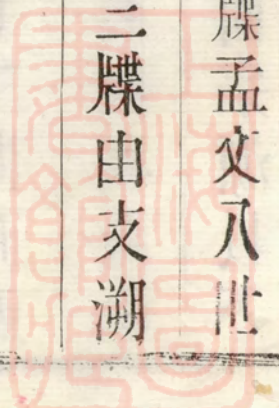 牒孟文八世
二牒由支溯